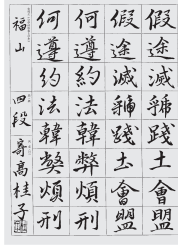 假途滅虢踐土會盟
假途滅虢踐土會盟
何遵約法韓弊煩刑
何遵約法韓弊煩刑
福山 四段 高桂子